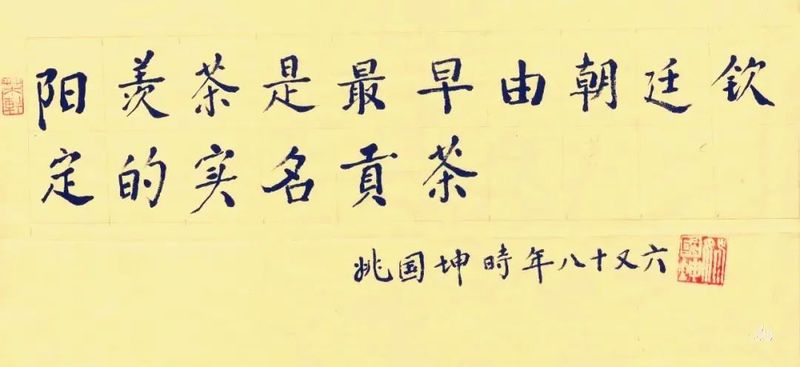 阳羡茶是最早由朝廷钦
定的实名贡茶
姚国坤時年八十又六